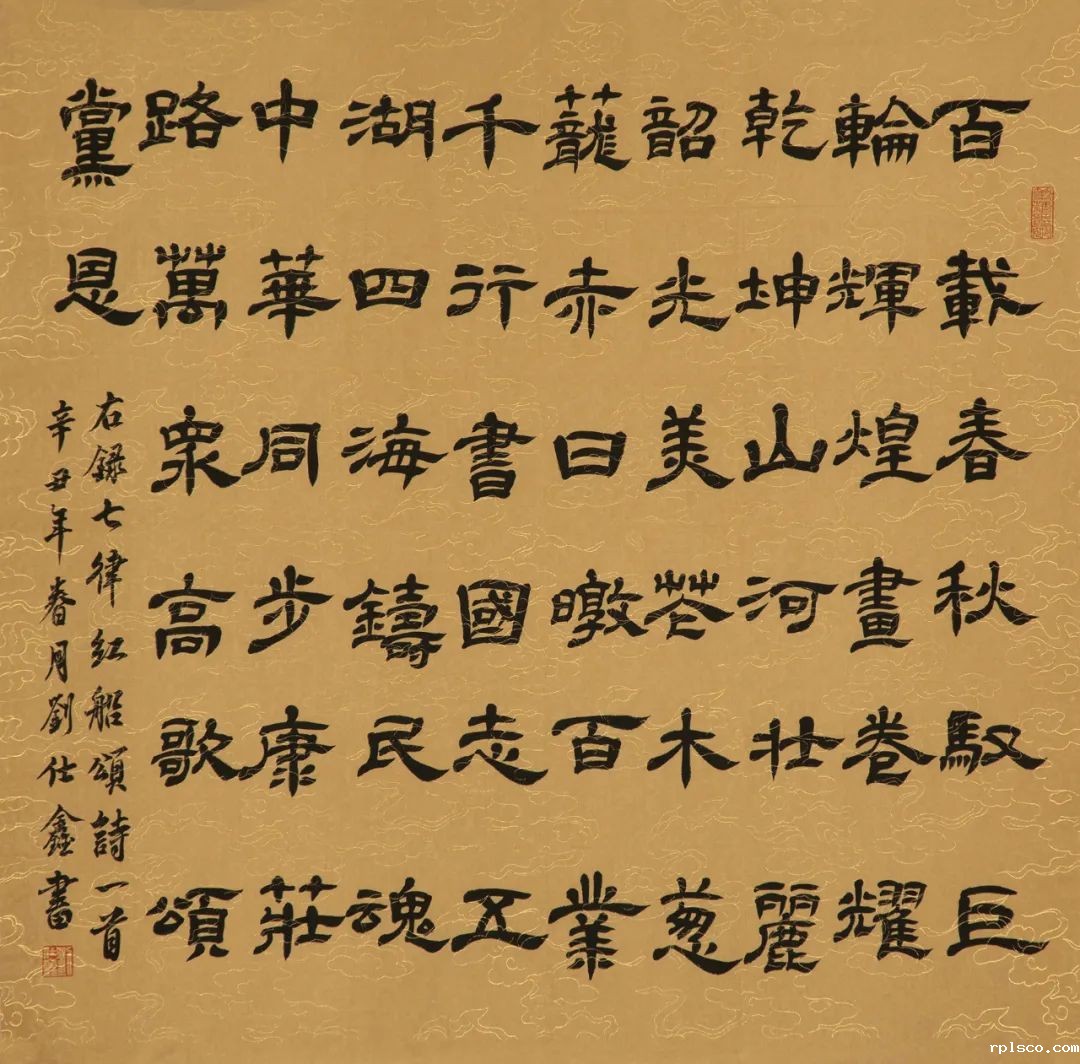 百載春秋馭巨
輪輝煌畫卷耀
乾坤山河壯麗
韶光美花木葱
蘢赤日暾百業
千行書國志五
湖四海鑄民魂
中華同步康莊
路萬衆高歌頌
黨恩
右録七律紅船頌詩一首
辛丑年春月劉仕鑫書
rplsco.com